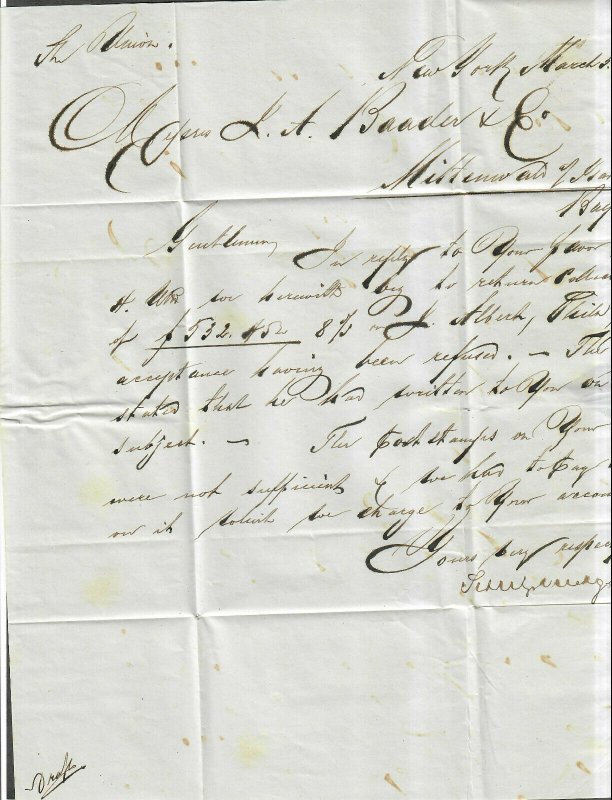 New York March
Messrs J. A. Baader & Co
Mittenwald
Gentlemen, In reply to Your favor
we herewith beg to return
of f 532. 8/3 J. Albert, Phil
acceptance having been refused. — The
stated that he had written to You on
subject. — The stamps on Your
were not sufficient & we had to pay
on it which we charge to Your accou
Yours very respec
Draft